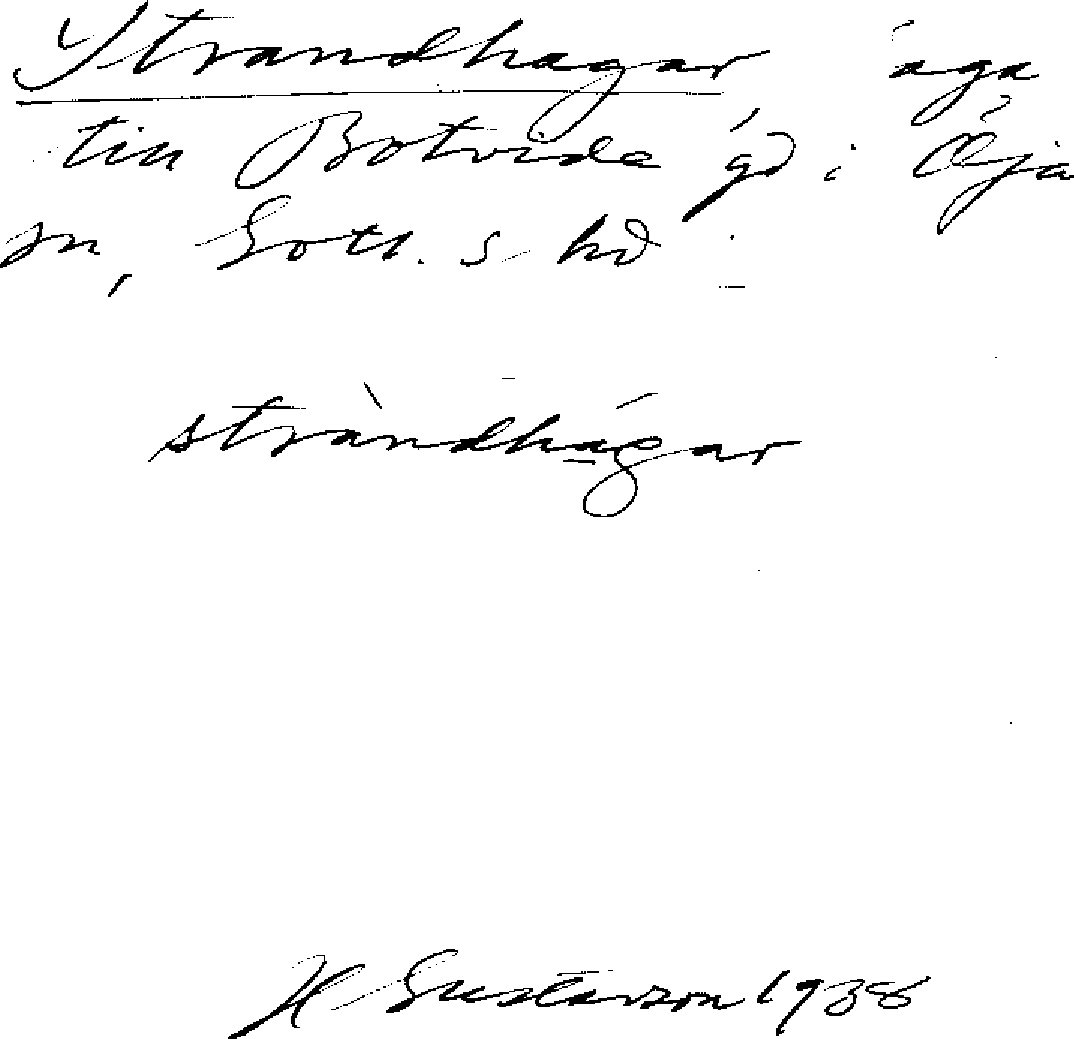 Strandhagar äga
till Botvide gd i Öja
sn, Gotl. s hd.
stràndhágar
H Gustavson 1938